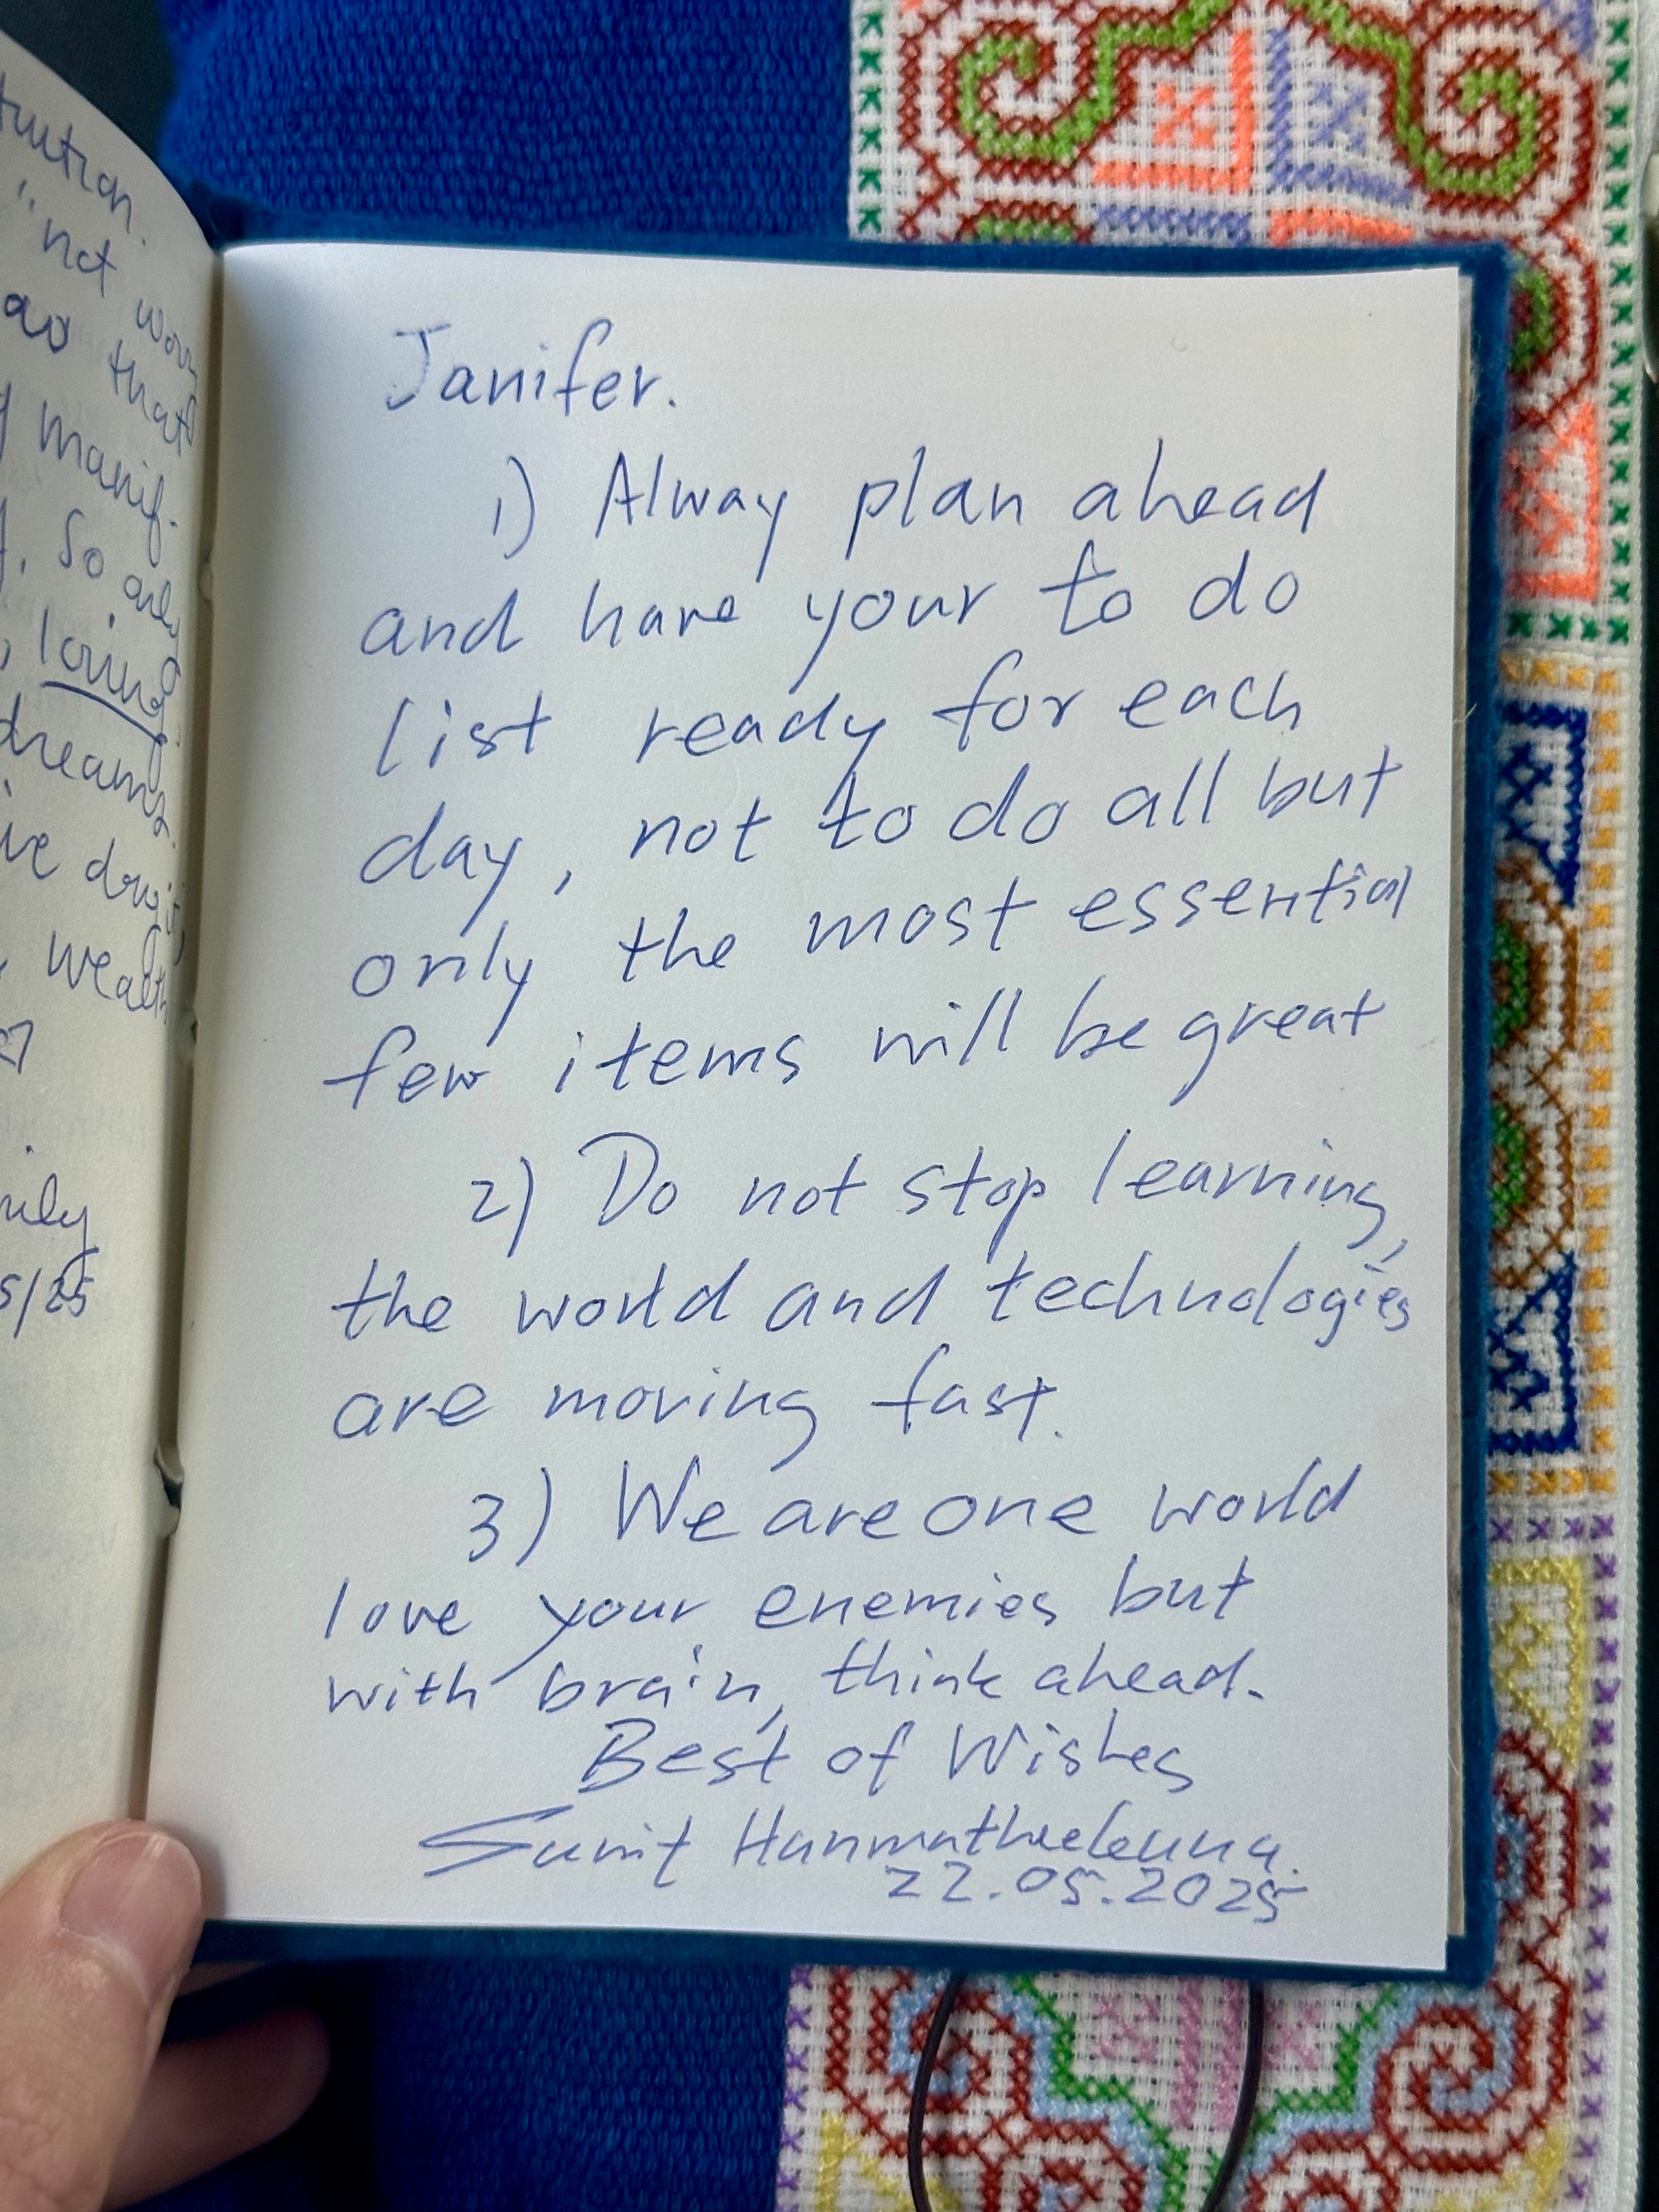 tution.
"not worry
ao that
manif.
. So only
, loving
dreams.
ive
, wealth
5/25
Janifer.
1) Alway plan ahead
and have your to do
list ready for each
day, not to do all but
only the most essential
few items will be great
2) Do not stop learning,
the world and technologies
are moving fast.
3) We are one world
love your enemies but
with brain, think ahead.
Best of Wishes
22.05.2025